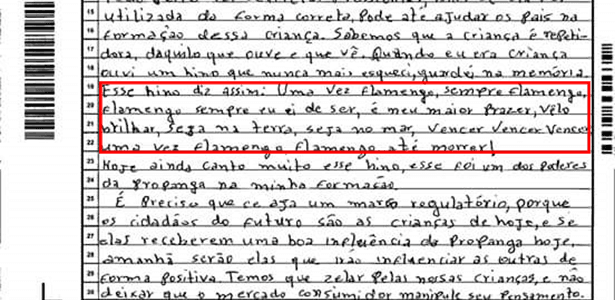 15 utilizada da forma correta, Pode até ajudar os Pais na
16 formação dessa criança. Sabemos que a criança é repeti-
17 dora, daquilo que ouve e que vê. Quando eu era criança
18 ouvi um hino que nunca mais esqueci, guardei na memória.
19 Esse hino diz assim: Uma vez flamengo, sempre flamengo,
20 flamengo sempre eu ei de ser, é meu maior Prazer, vêlo
21 brilhar, seja na terra, seja no mar, vencer vencer vencer
22 uma vez flamengo flamengo até morrer!
23 Hoje ainda canto muito esse hino, esse foi um dos poderes
24 da Propanga na minha formação.
25 É Preciso que ce aja um marco regulatório, porque
26 os cidadãos do futuro são as crianças de hoje, e se
27 elas receberem uma boa influência da Propanga hoje,
28 amanhã serão elas que irão influenciar as outras de
29 forma Positiva. Temos que zelar Pelas nossas crianças, e não
30 deixar que o mercado consumidor manipule seu Pensamento.